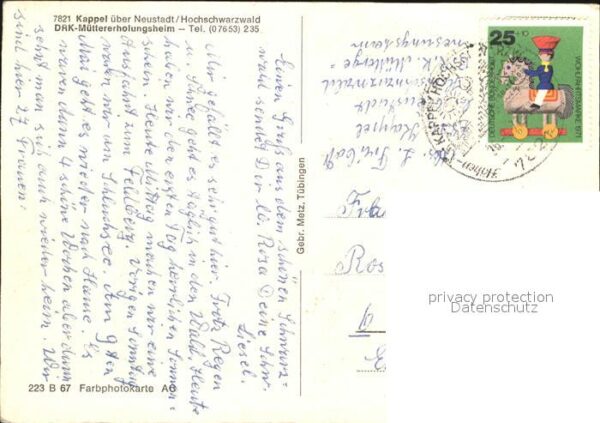 7821 Kappel über Neustadt/Hochschwarzwald
DRK-Müttererholungsheim – Tel. (07653) 235
Einen Gruß aus dem schönen Schwarz=
wald sendet Dir lb. Rosa Deine Schw.
Liesel.
Mir gefällt es sehr gut hier. Trotz Regen
u. Kälte geht es täglich in den Wald. Heute
haben wir den ersten Tag herrlichen Sonnen=
schein. Heute Mittag machen wir eine
Ausfahrt zum Feldberg. Vorigen Sonntag
waren wir am Schluchsee. Am 9ten
Mai geht es wieder nach Hause. Es
waren dann 4 schöne Wochen aber dann
sehnt man sich auch wieder heim. Wir
sind hier 27 Frauen.
Gebr. Metz, Tübingen
223 B 67 Farbphotokarte AG
Abs. L.
Kappel
Neustadt
Schwarzwald
nesungsheim
25
+10
WOHLFAHRTSMARKE 1971
DEUTSCHE BUNDESPOST
KAPPEL
Höhen
Ros
privacy protection
Datenschutz